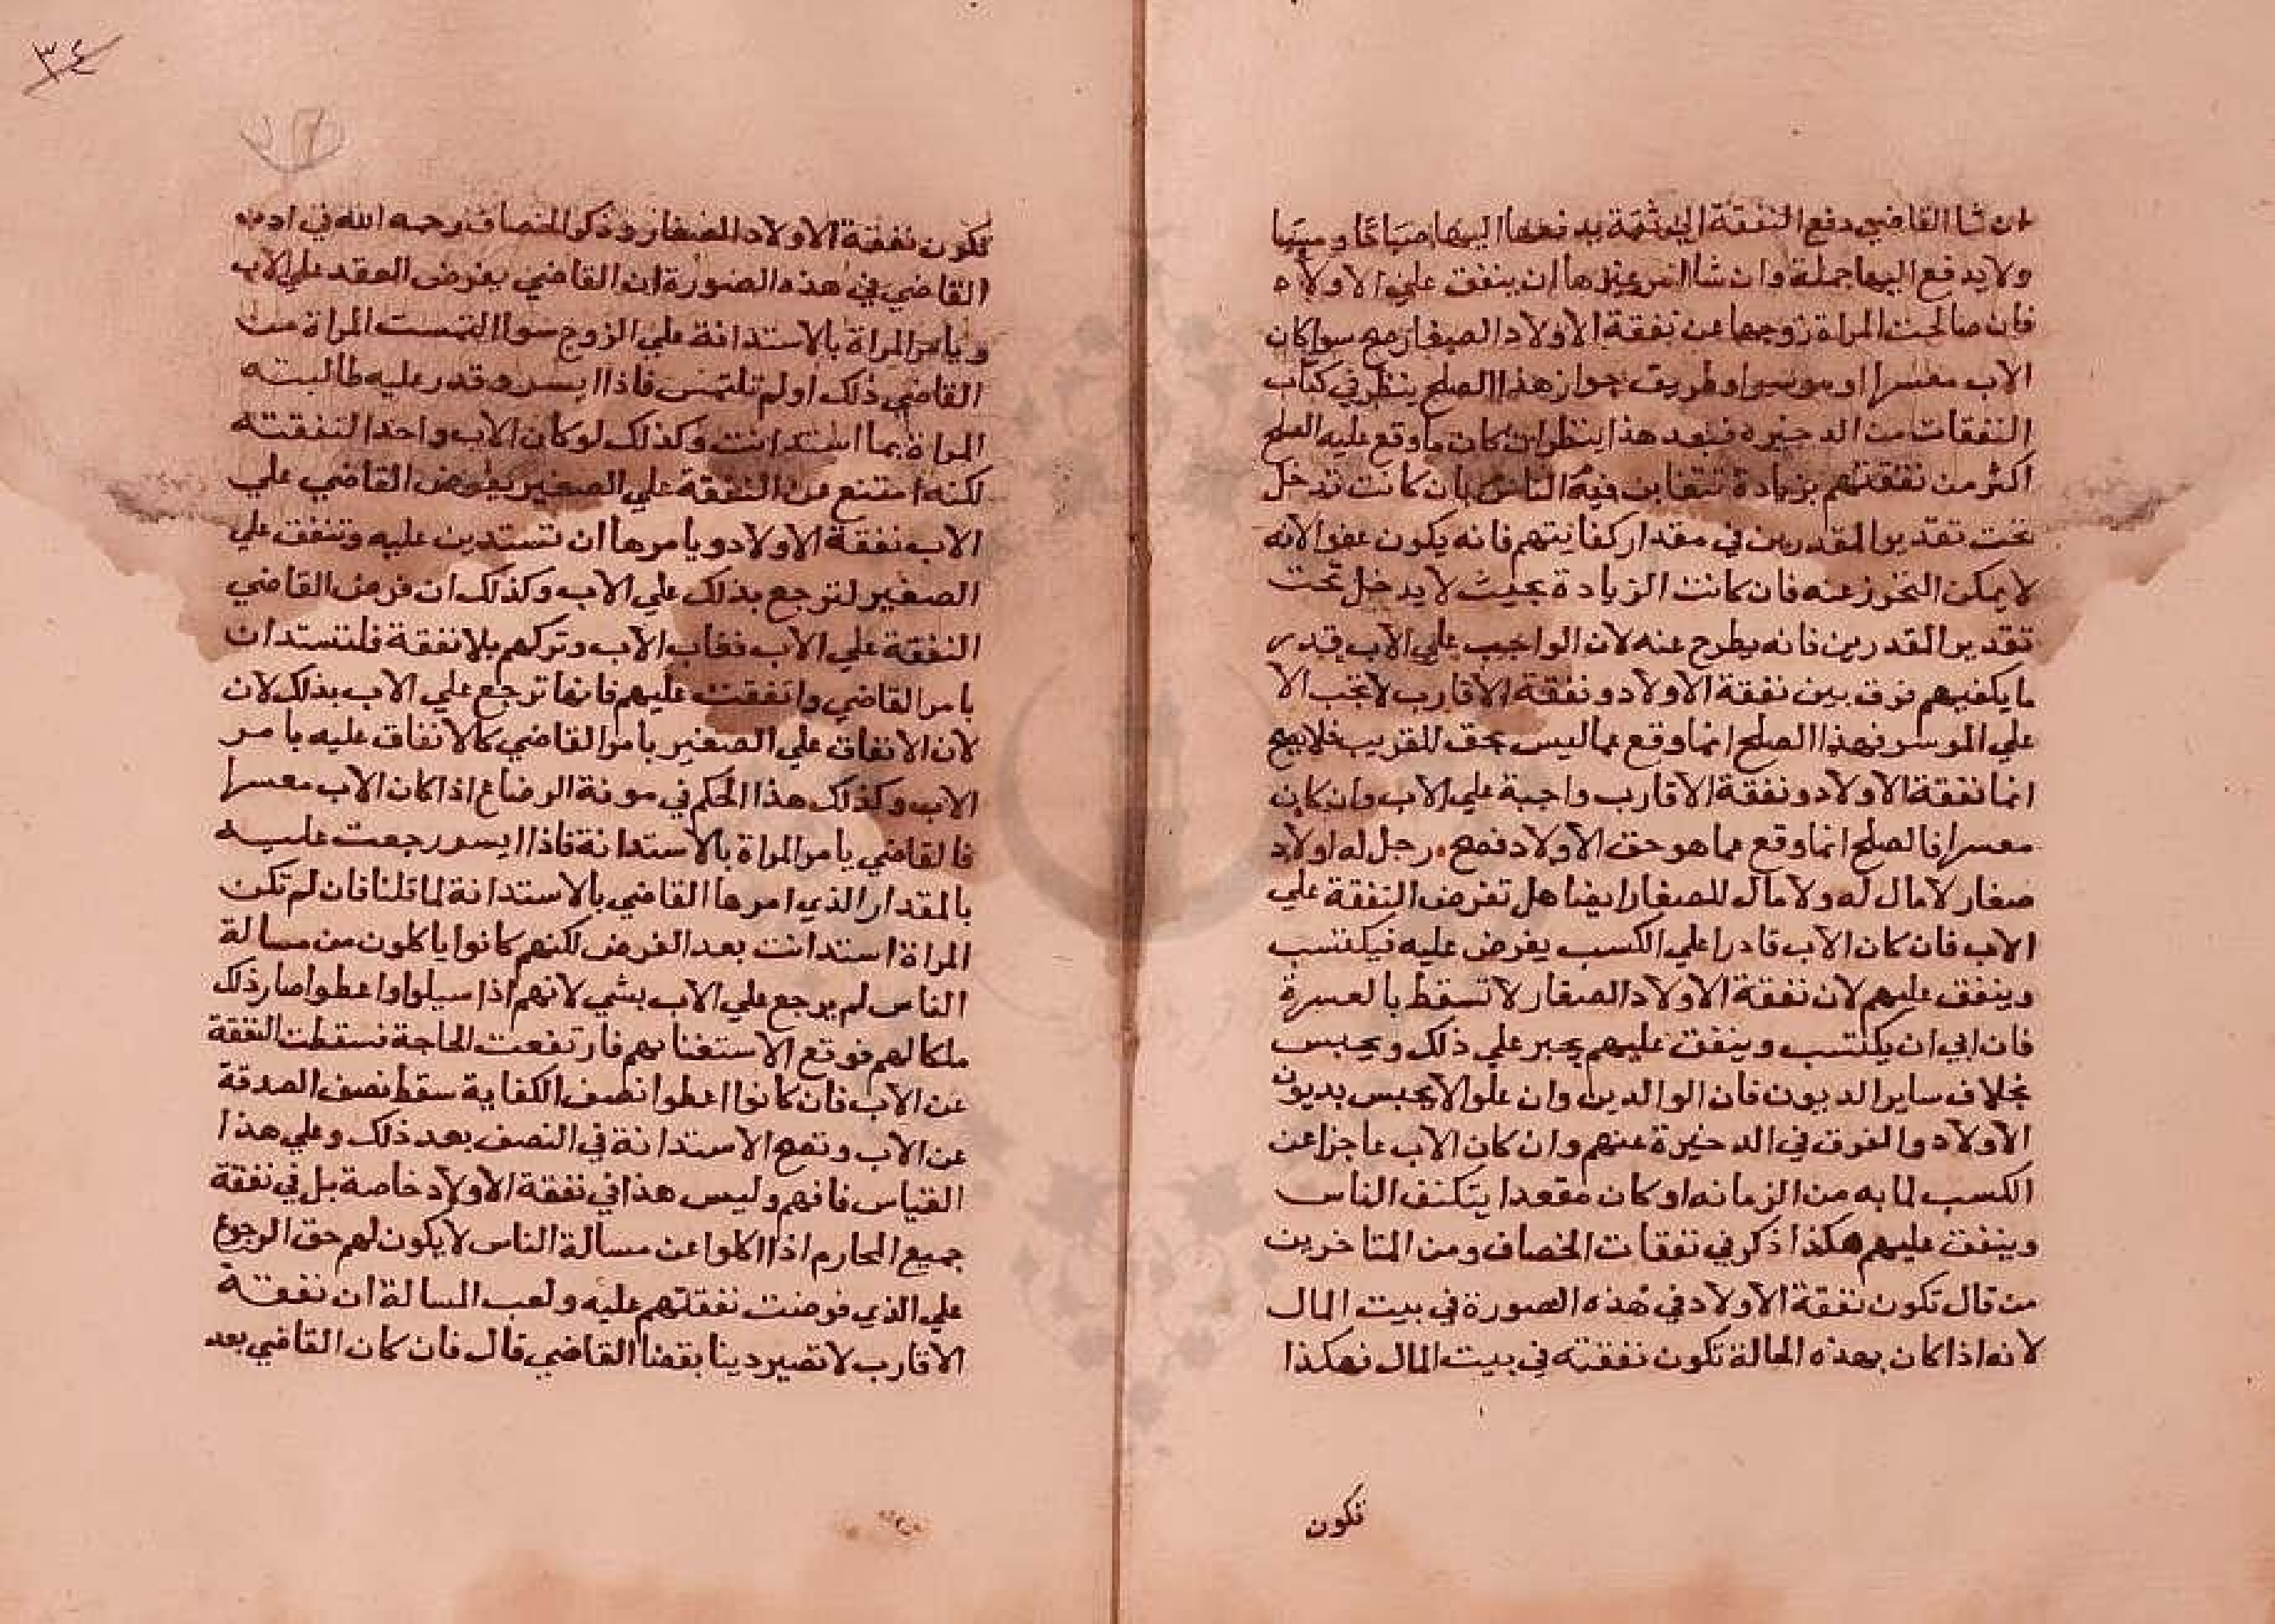 ان شا القاضي دفع النفقة الي ثقة يدفعها اليها صباحا ومسا
ولا يدفع اليها جملة وان شا امر غيرها ان ينفق علي الاولاد
فان صالحت المراة زوجها عن نفقة الاولاد الصغار صح سوا كان
الاب معسرا او موسرا وطريق جواز هذا الصلح ينظر في كتاب
النفقات من الدخيره فبعد هذا ينظر ان كان ما وقع عليه الصلح
اكثر من نفقتهم بزيادة تتغابن فيه الناس بان كانت تدخل
تحت تقدير المقدرين في مقدار كفايتهم فانه يكون عفوا لانه
لا يمكن التحرز عنه فان كانت الزيادة بحيث لا يدخل تحت
تقدير المقدرين فانه يطرح عنه لان الواجب علي الاب قدر
ما يكفيهم فرق بين نفقة الاولاد ونفقة الاقارب لا تجب الا
علي الموسر فهذا الصلح انما وقع عما ليس بحق للقريب فلا يصح
انما نفقة الاولاد ونفقة الاقارب واجبة علي الاب وان كان
معسرا فالصلح انما وقع عما هو حق الاولاد فصح . رجل له اولاد
صغار لا مال له ولا مال للصغار ايضا هل تفرض النفقة علي
الاب فان كان الاب قادرا علي الكسب يفرض عليه فيكتسب
وينفق عليهم لان نفقة الاولاد الصغار لا تسقط بالعسرة
فان ابي ان يكتسب وينفق عليهم يجبر علي ذلك ويحبس
بخلاف ساير الديون فان الوالدين وان علوا لا يحبس بديون
الاولاد والفرق في الدخيرة عنهم وان كان الاب عاجزا عن
الكسب لما به من الزمانه او كان مقعدا يتكفف الناس
وينفق عليهم هكذا ذكر في نفقات الخصاف ومن المتاخرين
من قال تكون نفقة الاولاد في هذه الصورة في بيت المال
لانه اذا كان بهذه الحالة تكون نفقته في بيت المال فهكذا
تكون
٣٤
تكون نفقة الاولاد الصغار وذكر الخصاف رحمه الله في ادب
القاضي في هذه الصورة ان القاضي يفرض العقد علي الاب
ويامر المراة بالاستدانة علي الزوج سوا التمست المراة من
القاضي ذلك او لم تلتمس فاذا ايسر وقدر عليه طالبته
المراة بما استدانت وكذلك لو كان الاب واحدا لنفقته
لكنه امتنع عن النفقة علي الصغير يفرض القاضي علي
الاب نفقة الاولاد ويامرها ان تستدين عليه وتنفق علي
الصغير لترجع بذلك علي الاب وكذلك ان فرض القاضي
النفقة علي الاب فغاب الاب وتركهم بلا نفقة فلتستدان
بامر القاضي وانفقت عليهم فانها ترجع علي الاب بذلك لان
لان الانفاق علي الصغير بامر القاضي كالانفاق عليه بامر
الاب وكذلك هذا الحكم في مونة الرضاع اذا كان الاب معسرا
فالقاضي يامر المراة بالاستدانة فاذا ايسر رجعت عليه
بالمقدار الذي امرها القاضي بالاستدانة لما قلنا فان لم تكن
المراة استدانت بعد الفرض لكنهم كانوا ياكلون من مسالة
الناس لم يرجع علي الاب بشي لانهم اذا سيلوا واعطوا صار ذلك
ملكا لهم فوقع الاستغنا بهم فارتفعت الحاجة فسقطت النفقة
عن الاب فان كانوا اعطوا نصف الكفاية سقط نصف الصدقة
عن الاب وتصح الاستدانة في النصف بعد ذلك وعلي هذا
القياس فافهم وليس هذا في نفقة الاولاد خاصة بل في نفقة
جميع المحارم اذا اكلوا عن مسالة الناس لا يكون لهم حق الرجوع
علي الذي فرضت نفقتهم عليه ولعب المسالة ان نفقة
الاقارب لا تصير دينا بقضا القاضي قال فان كان القاضي بعد